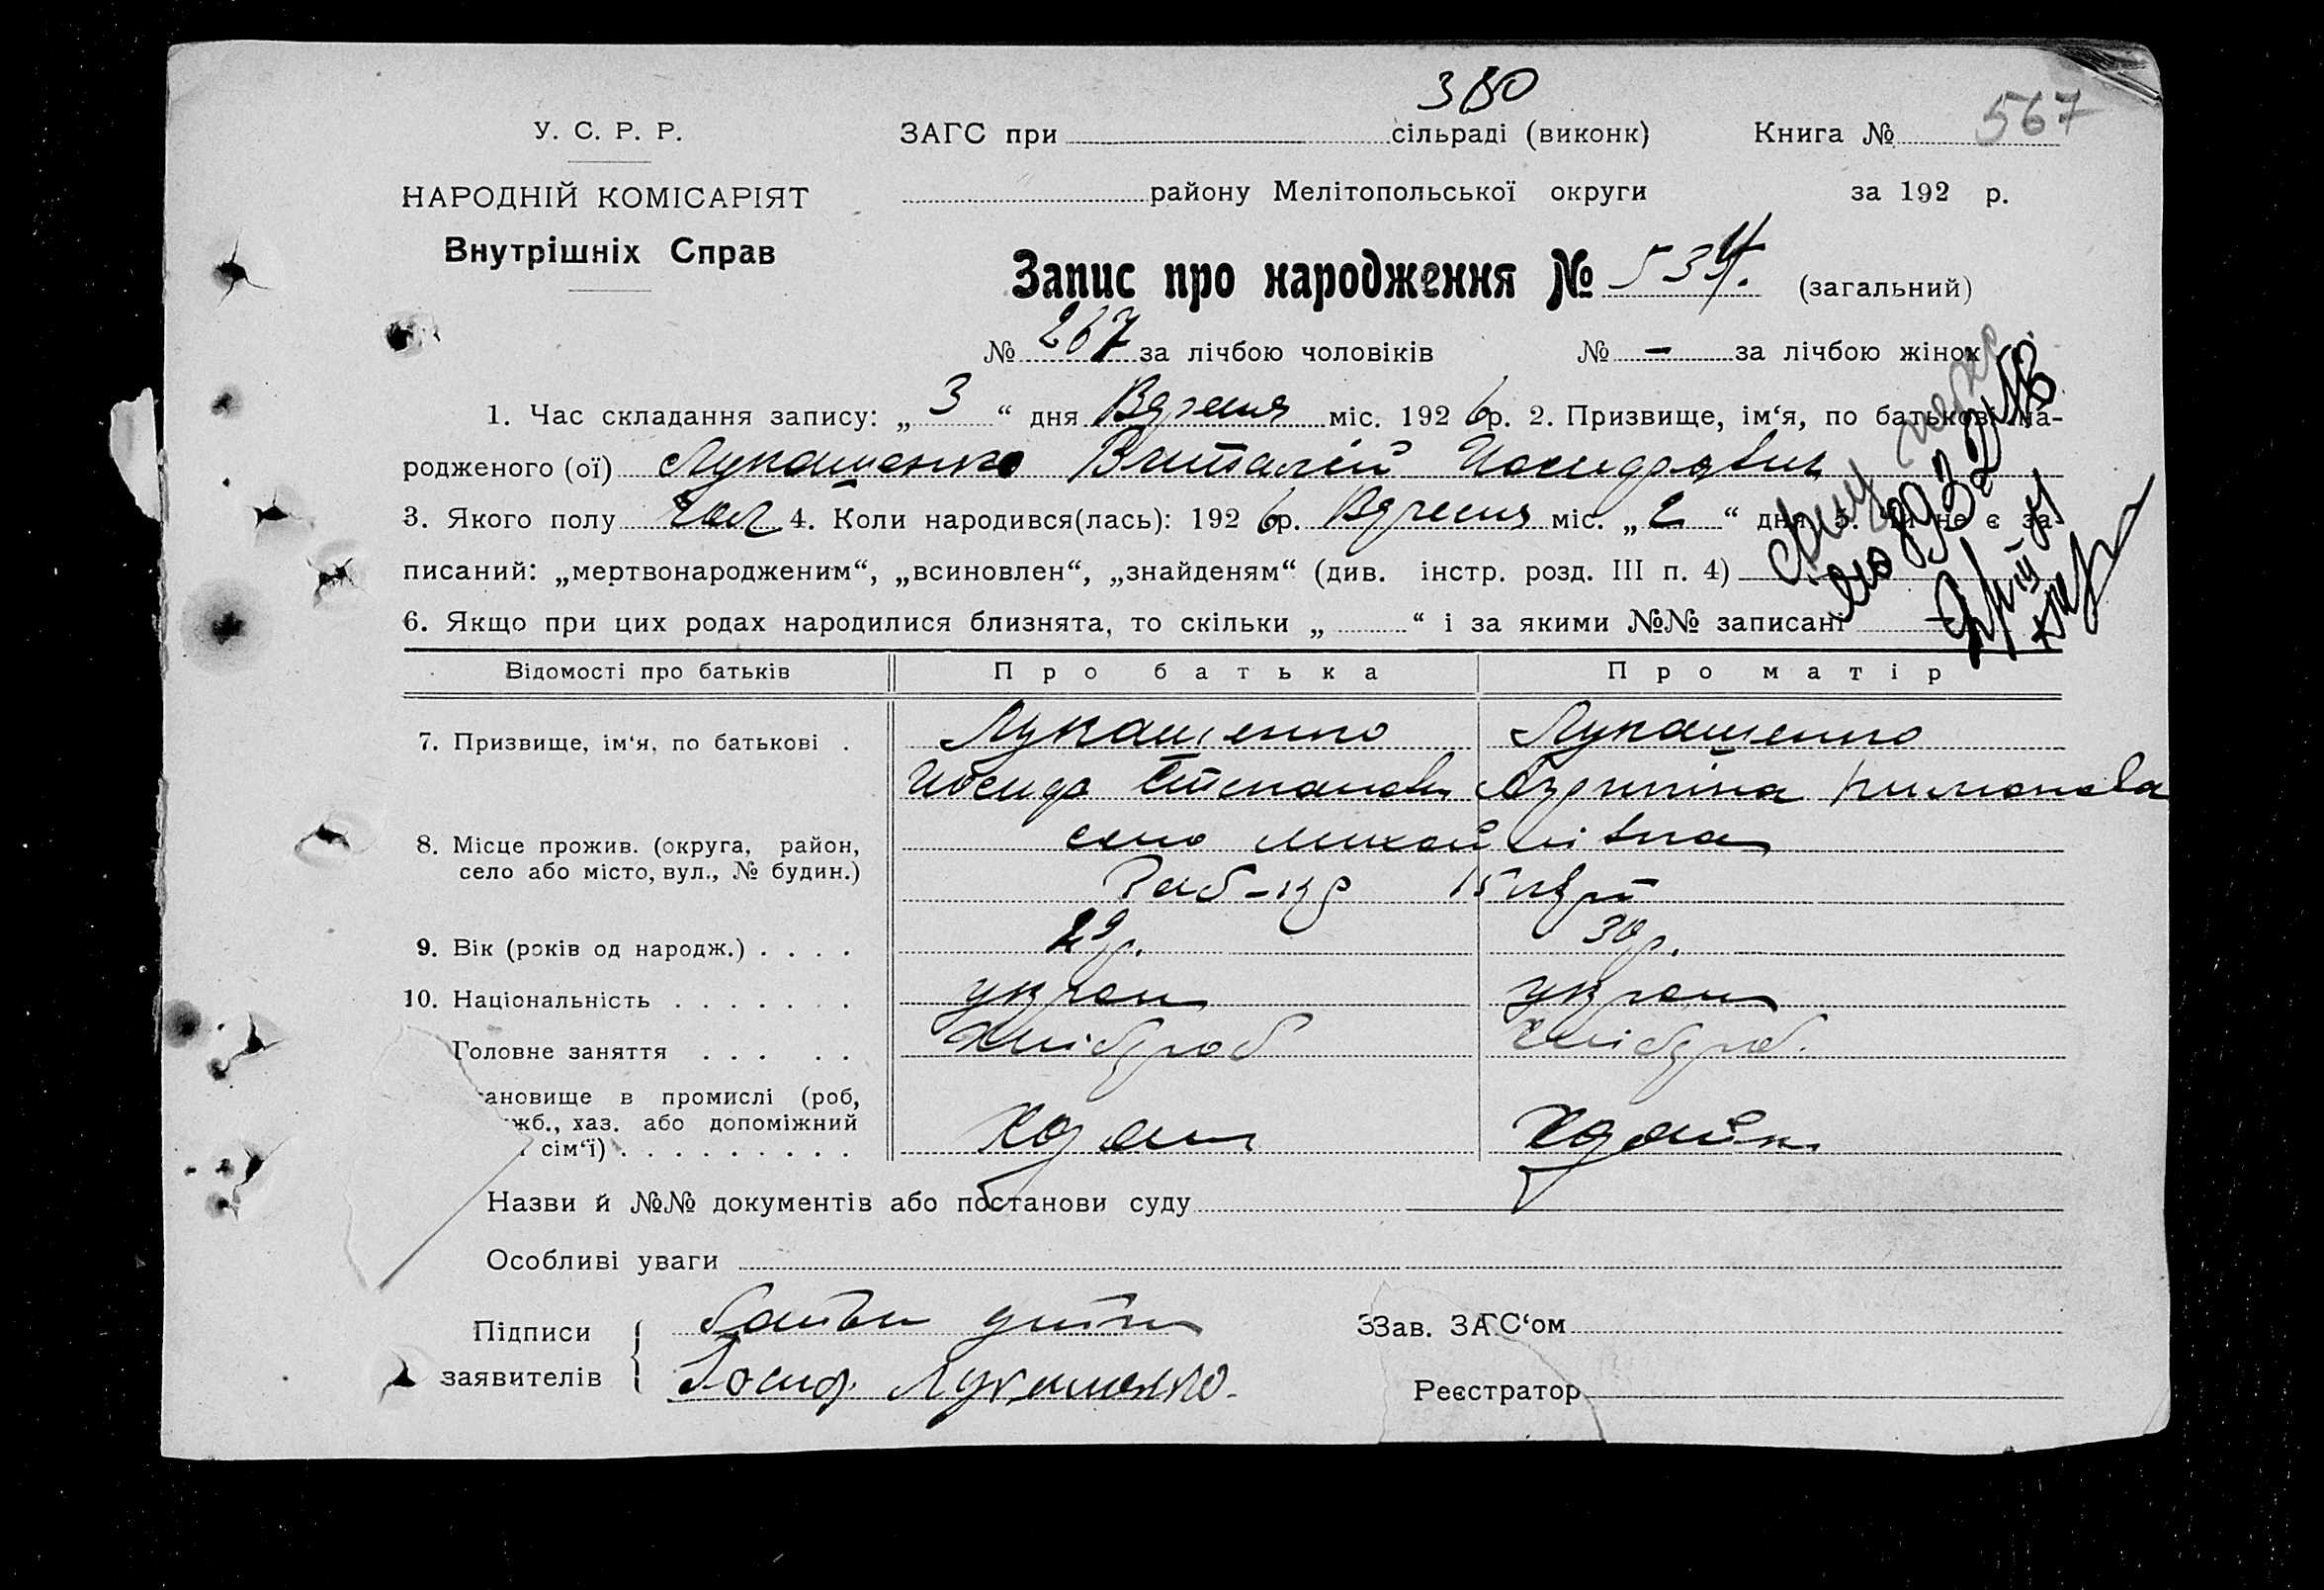 380
У. С. Р. Р. ЗАГС при сільраді (виконк) Книга № 567
НАРОДНІЙ КОМІСАРІЯТ району Мелітопольської округи за 192 р.
Внутрішніх Справ
Запис про народження № 534. (загальний)
№ 267 за лічбою чоловіків № — за лічбою жінок
1. Час складання запису: „ 3 “ дня Вересня міс. 192 6 р. 2. Призвище, ім‘я, по батькові на-
родженого (ої) Лукашенко Виталій Иосипович
3. Якого полу чол 4. Коли народився(лась): 192 6 р. Вересня міс. „ 2 “ дня 5. Чи не є за-
писаний: „мертвонародженим“, „всиновлен“, „знайденям“ (див. інстр. розд. III п. 4)
6. Якщо при цих родах народилися близнята, то скільки „ “ і за якими №№ записані
Відомості про батьків Про батька Про матір
7. Призвище, ім‘я, по батькові . Лукашенко Лукашенко
Степанов
8. Місце прожив. (округа, район, село Михайлівка
село або місто, вул., № будин.)
9. Вік (років од народж.) . . . . 29 р. 30 р.
10. Національність . . . . . . . украин украин
Головне заняття . . . . . хлібороб хлібороб.
ановище в промислі (роб,
жб., хаз. або допоміжний
сім‘ї) . . . . . . . . .
Назви й №№ документів або постанови суду
Особливі уваги
Підписи батьки дитини ЗЗав. ЗАГС‘ом
заявителів Іосиф Лукашенко. Реєстратор